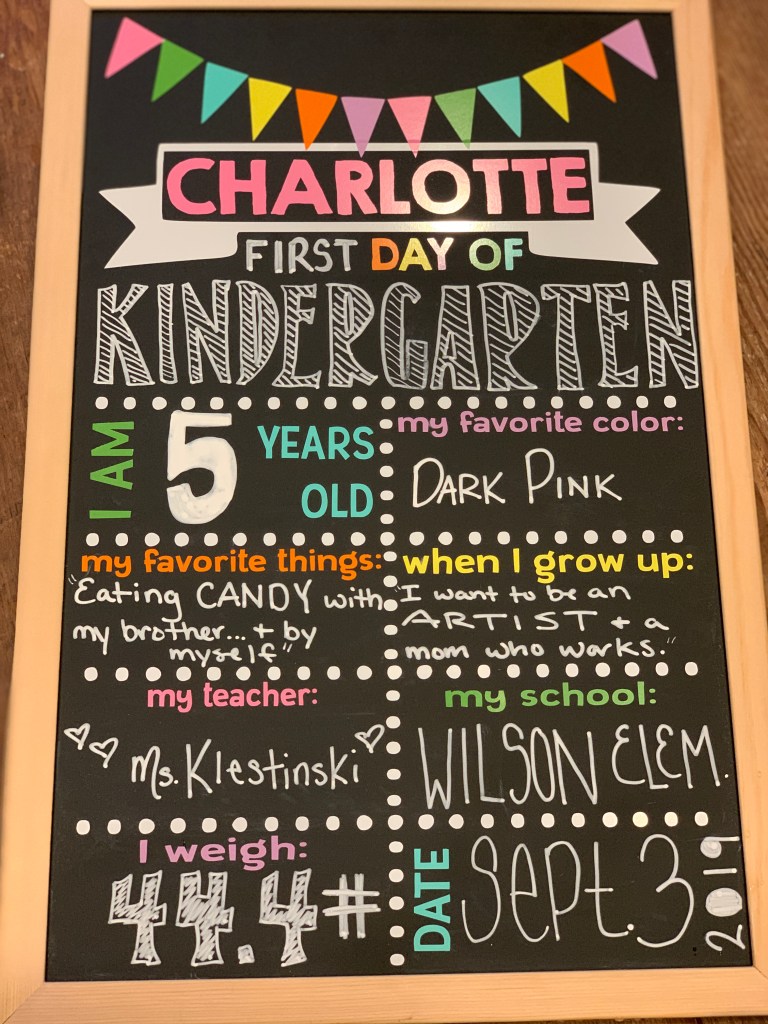 CHARLOTTE
FIRST DAY OF
KINDERGARTEN
I AM 5 YEARS OLD
my favorite color:
DARK PINK
my favorite things:
"Eating CANDY with
my brother... + by
myself"
when I grow up:
"I want to be an
ARTIST + a
mom who works."
my teacher:
Ms. Klestinski
my school:
WILSON ELEM.
I weigh:
44.4#
DATE Sept. 3 2019